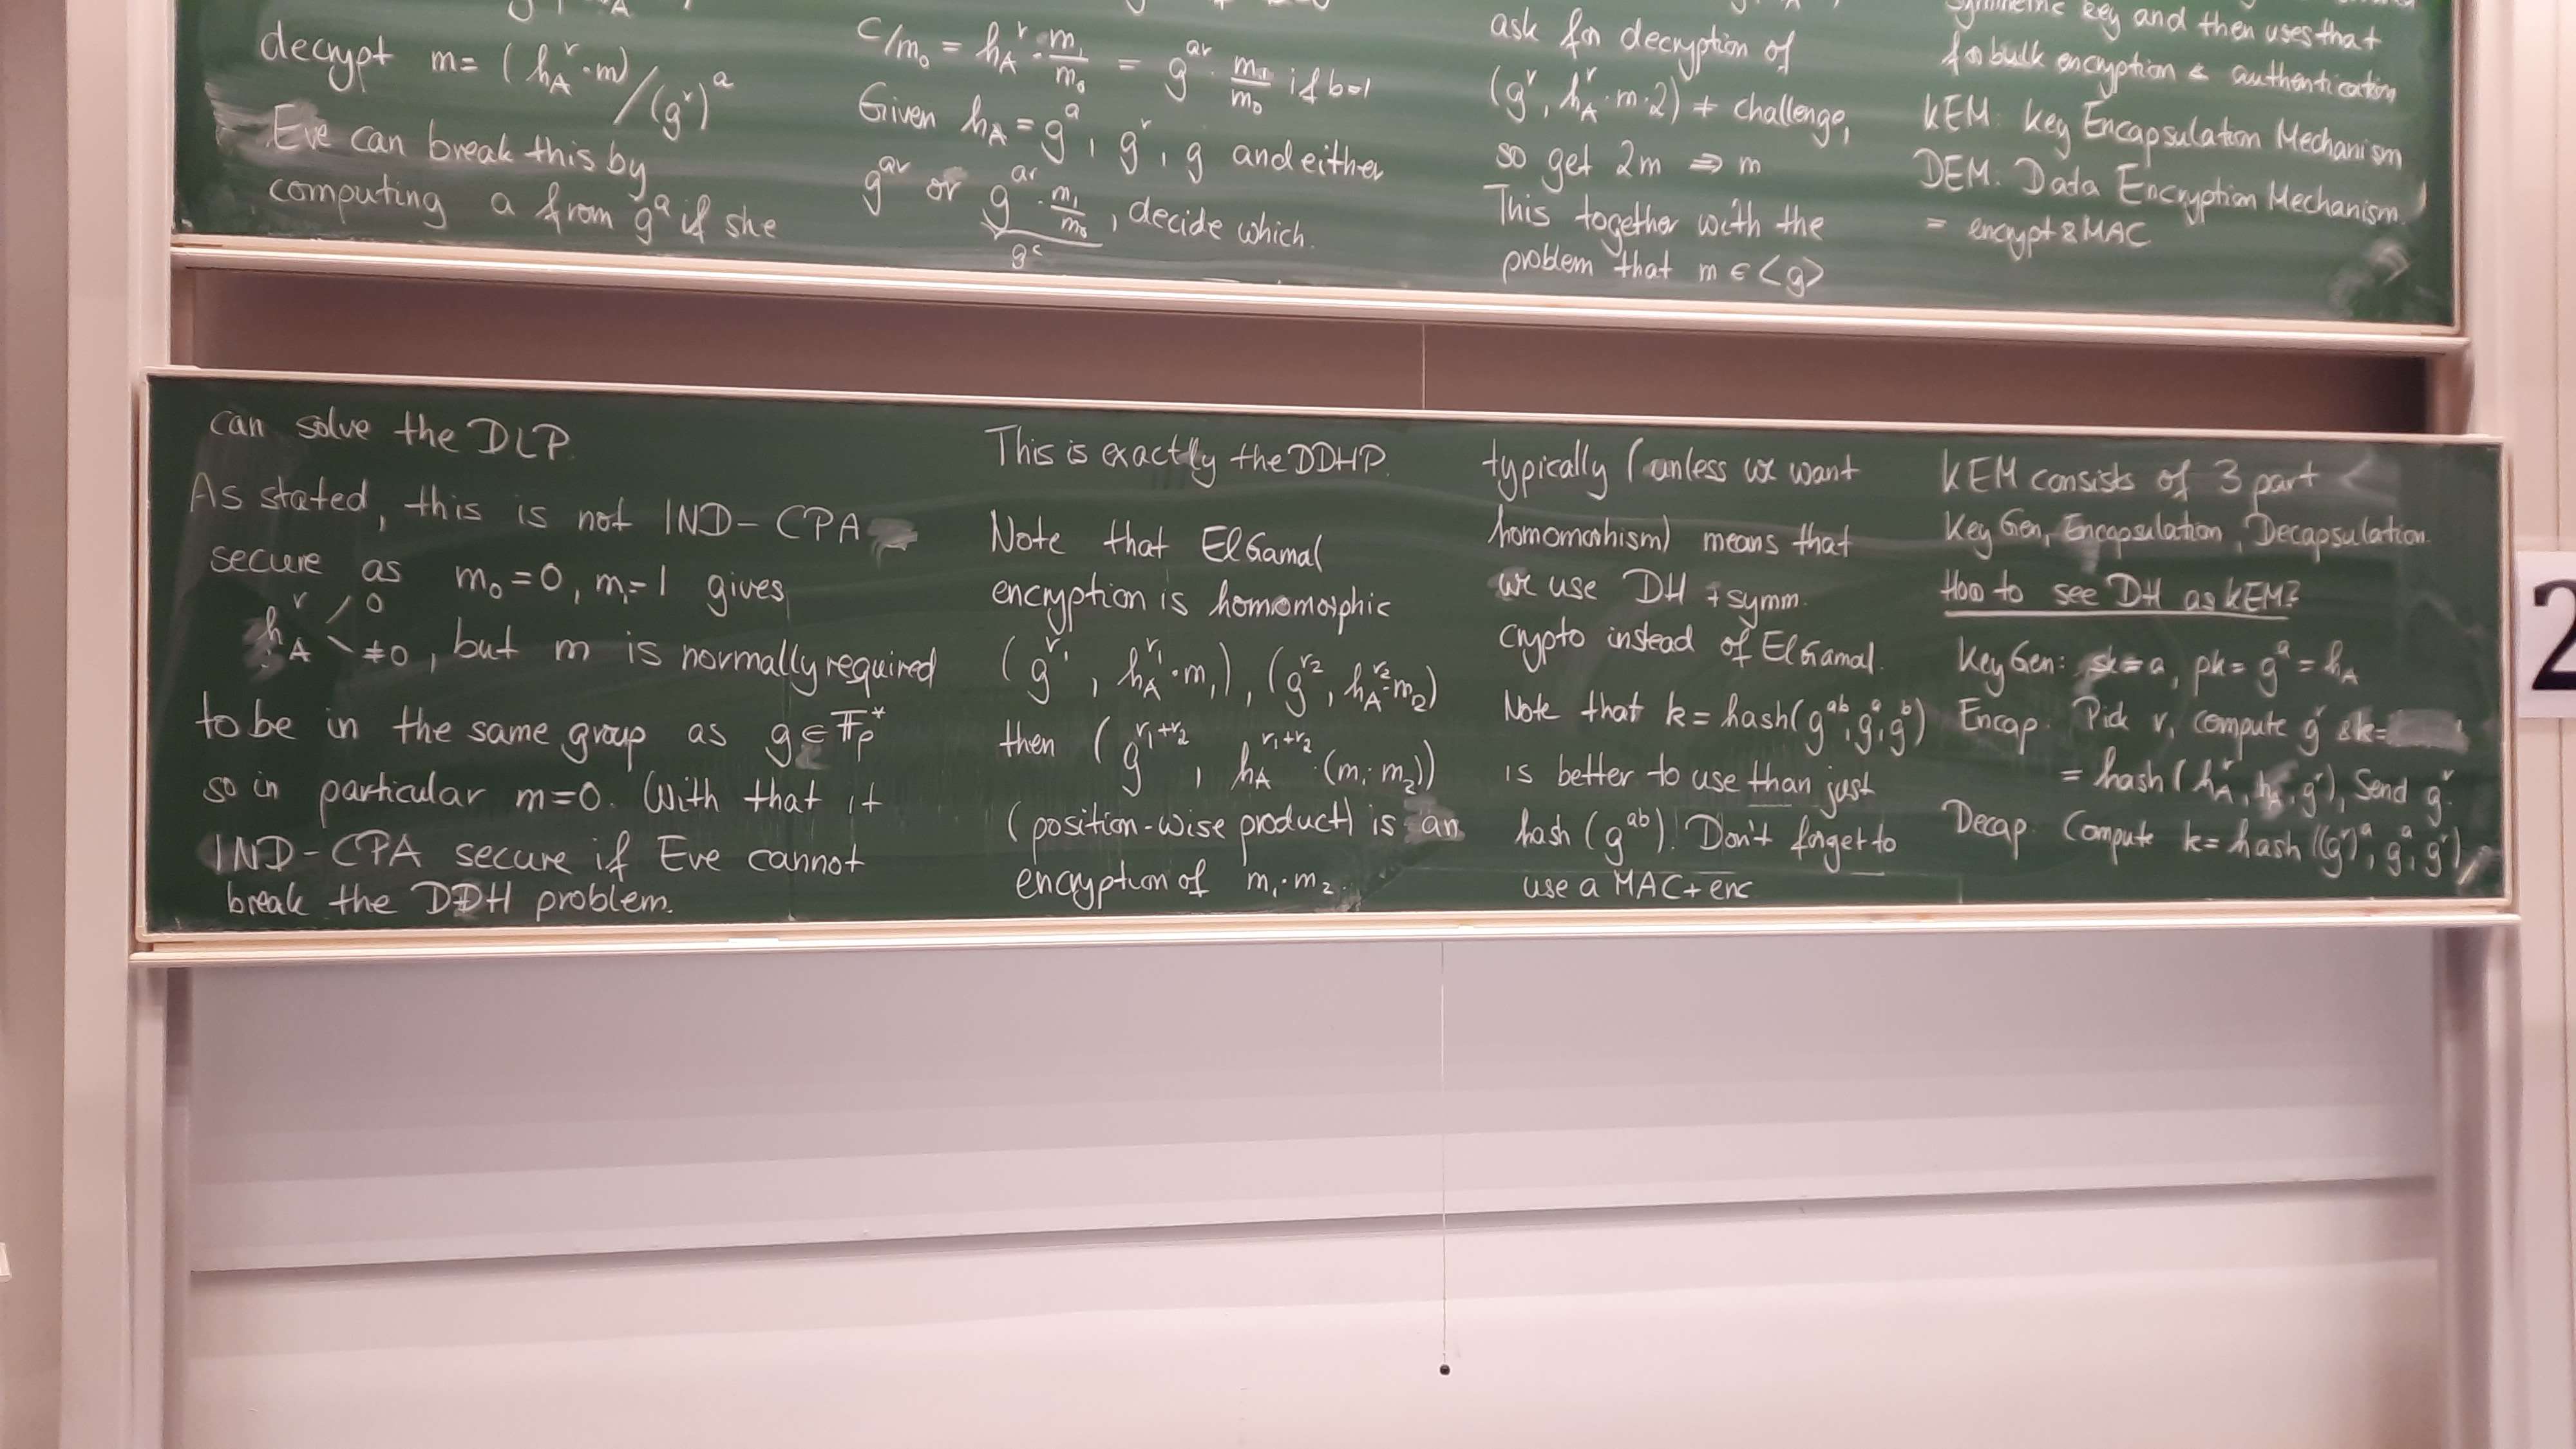 decrypt m= (h_A^r · m)/(g^r)^a
Eve can break this by
computing a from g^a if she
C/m_0 = h_A^r · m_1/m_0 = g^ar · m_1/m_0 if b=1
Given h_A = g^a, g^r, g and either
g^ar or g^ar · m_1/m_0, decide which.
g^c
ask for decryption of
(g^r, h_A^r · m · 2) ≠ challenge,
so get 2m ⇒ m
This together with the
problem that m ∈ <g>
symmetric key and then uses that
for bulk encryption & authentication
KEM: Key Encapsulation Mechanism
DEM: Data Encryption Mechanism
= encrypt & MAC
can solve the DLP.
As stated, this is not IND-CPA
secure as m_0 = 0, m_1 = 1 gives
h_A^r 0
≠0, but m is normally required
to be in the same group as g ∈ F_p^*
so in particular m=0. With that it
IND-CPA secure if Eve cannot
break the DDH problem.
This is exactly the DDHP.
Note that ElGamal
encryption is homomorphic
(g^r_1, h_A^r_1 · m_1), (g^r_2, h_A^r_2 · m_2)
then (g^r_1+r_2, h_A^r_1+r_2 · (m_1 · m_2))
(position-wise product) is an
encryption of m_1 · m_2.
typically (unless we want
homomorhism) means that
we use DH + symm.
crypto instead of ElGamal.
Note that k = hash(g^ab, g^a, g^b)
is better to use than just
hash (g^ab). Don't forget to
use a MAC + enc
KEM consists of 3 part
KeyGen, Encapsulation, Decapsulation.
How to see DH as KEM?
KeyGen: sk = a, pk = g^a = h_A
Encap. Pick r, compute g^r & k=
= hash (h_A^r, h_A, g^r), Send g^r.
Decap. Compute k = hash ((g^r)^a, g^a, g^r)
2